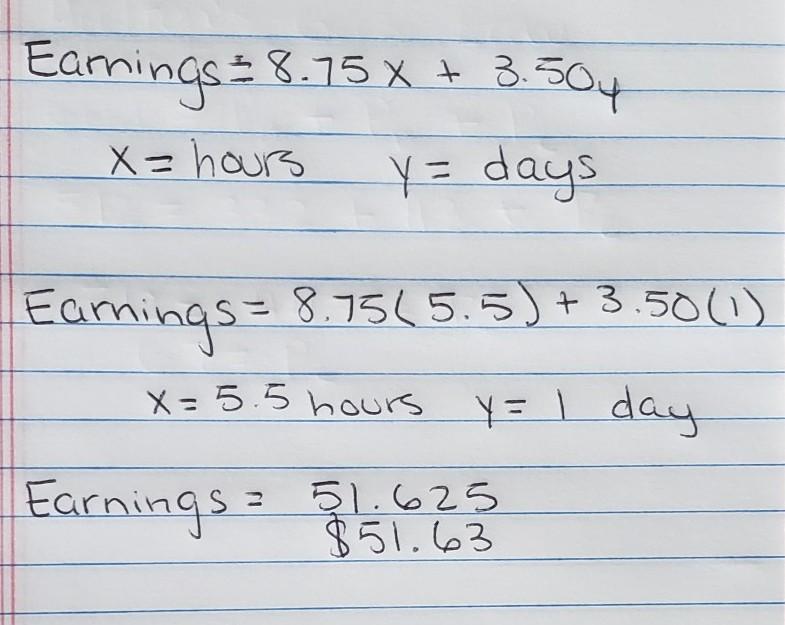 Earnings = 8.75x + 3.50y
x = hours y = days
Earnings = 8.75(5.5) + 3.50(1)
x = 5.5 hours y = 1 day
Earnings = 51.625
$51.63